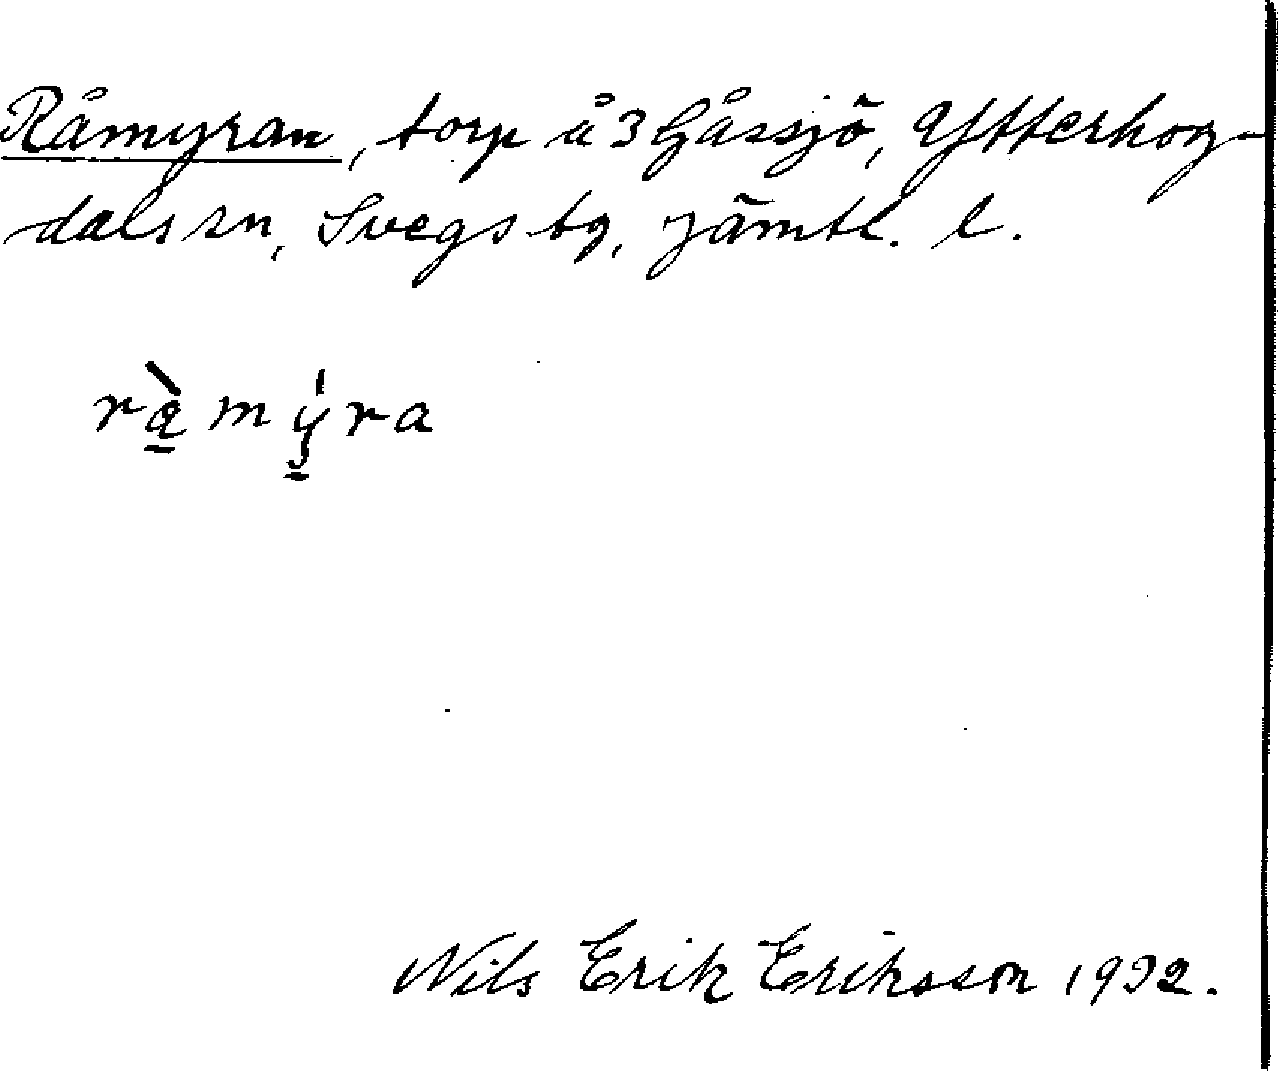 Råmyran, torp å 3 Gåssjö, Ytterhog-
dals sn, Svegs tg, Jämtl. l.
rå̀mýra
Nils Erik Eriksson 1932.